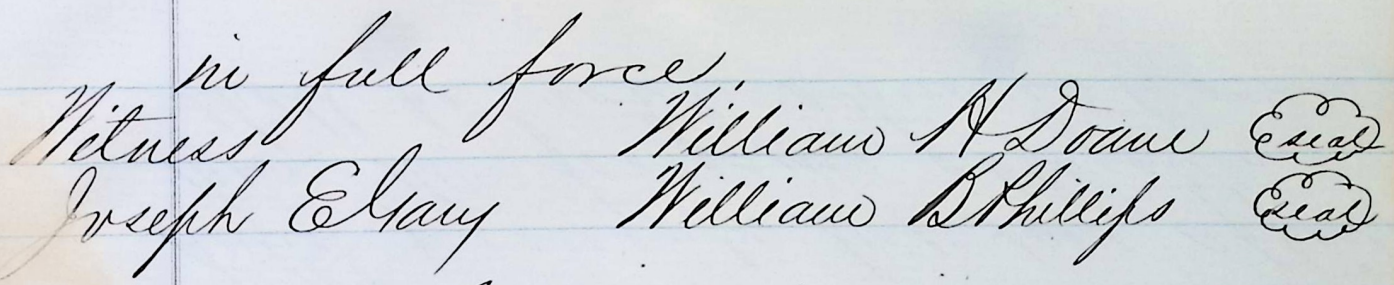 in full force.
Witness William H Doane Seal
Joseph E Gary William B Phillips Seal